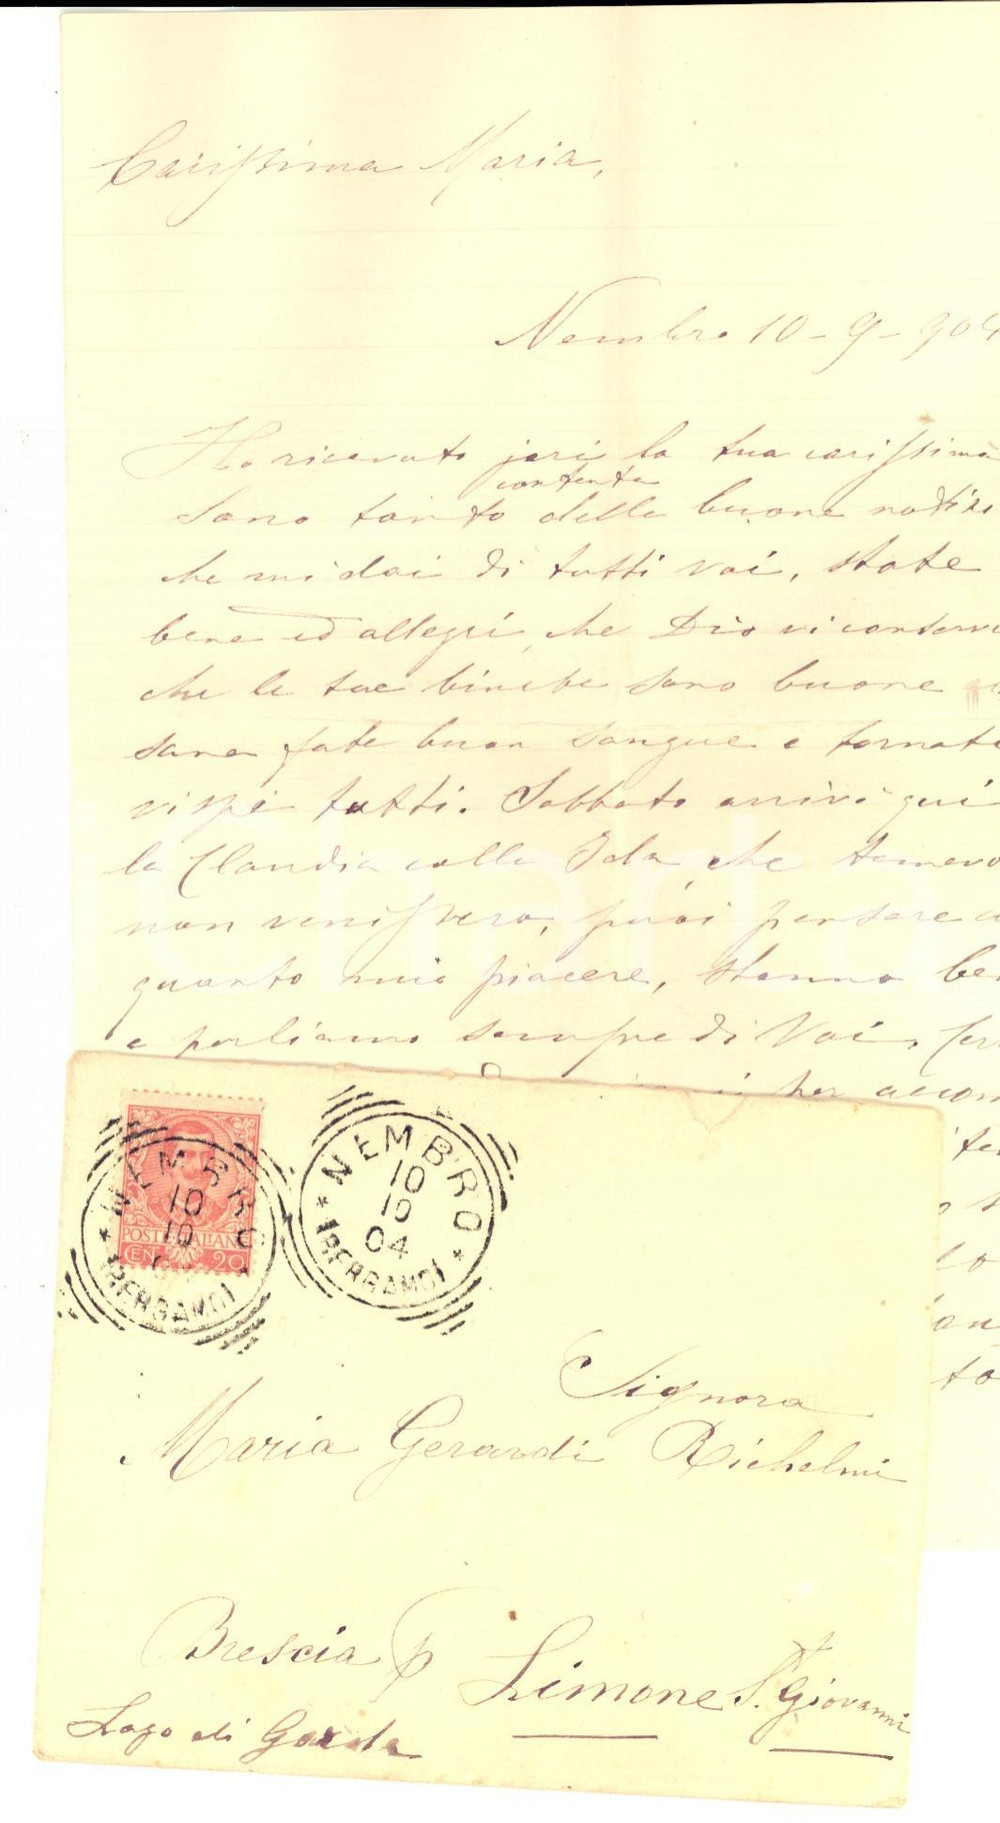 Carissima Maria,
Nembro 10-9-904
Ho ricevuto jeri la tua carissima
contenta
Sono tanto delle buone notizi
che mi dai di tutti voi, state
bene ed allegri, che Dio vi conservi
che le tue bimbe sono buone
sane fate buon sangue e tornate
vispi tutti. Sabbato arrivò qui
la Claudia colla Ida, che temevo
non venissero, puoi pensare
quanto mio piacere, stanno ben
e parliamo sempre di Voi,
per accom
to
NEMBRO
10
10
(BERGAMO)
POSTE ITALIANE
CEN. 20
NEMBRO
10
10
04
(BERGAMO)
Signora
Maria Gerardi Richelmi
Brescia p Limone S. Giovanni
Lago di Garda